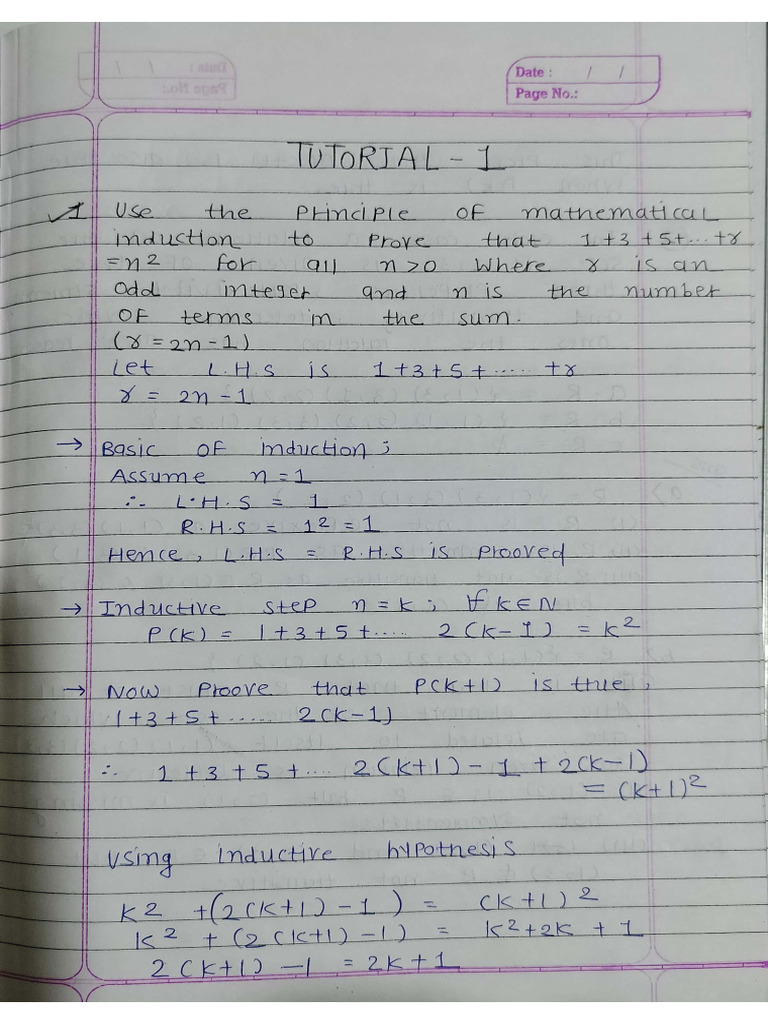 Date : / /
Page No.:
TUTORIAL - 1
1 Use the Principle of mathematical
induction to Prove that 1+3+5+...+r
=n² for all n>0 where r is an
odd integer and n is the number
of terms in the sum.
(r = 2n-1)
Let L.H.S is 1+3+5+......+r
r = 2n-1
→ Basic of induction;
Assume n=1
∴ L.H.S = 1
R.H.S = 1² = 1
Hence, L.H.S = R.H.S is prooved
→ Inductive step n=k; ∀ k∈N
P(k) = 1+3+5+..... 2(k-1) = k²
→ Now Proove that P(k+1) is true,
1+3+5+...... 2(k-1)
∴ 1+3+5+.... 2(k+1)-1 + 2(k-1)
= (k+1)²
Using inductive hypothesis
k² +(2(k+1)-1) = (k+1)²
k² + (2(k+1)-1) = k²+2k+1
2(k+1)-1 = 2k+1